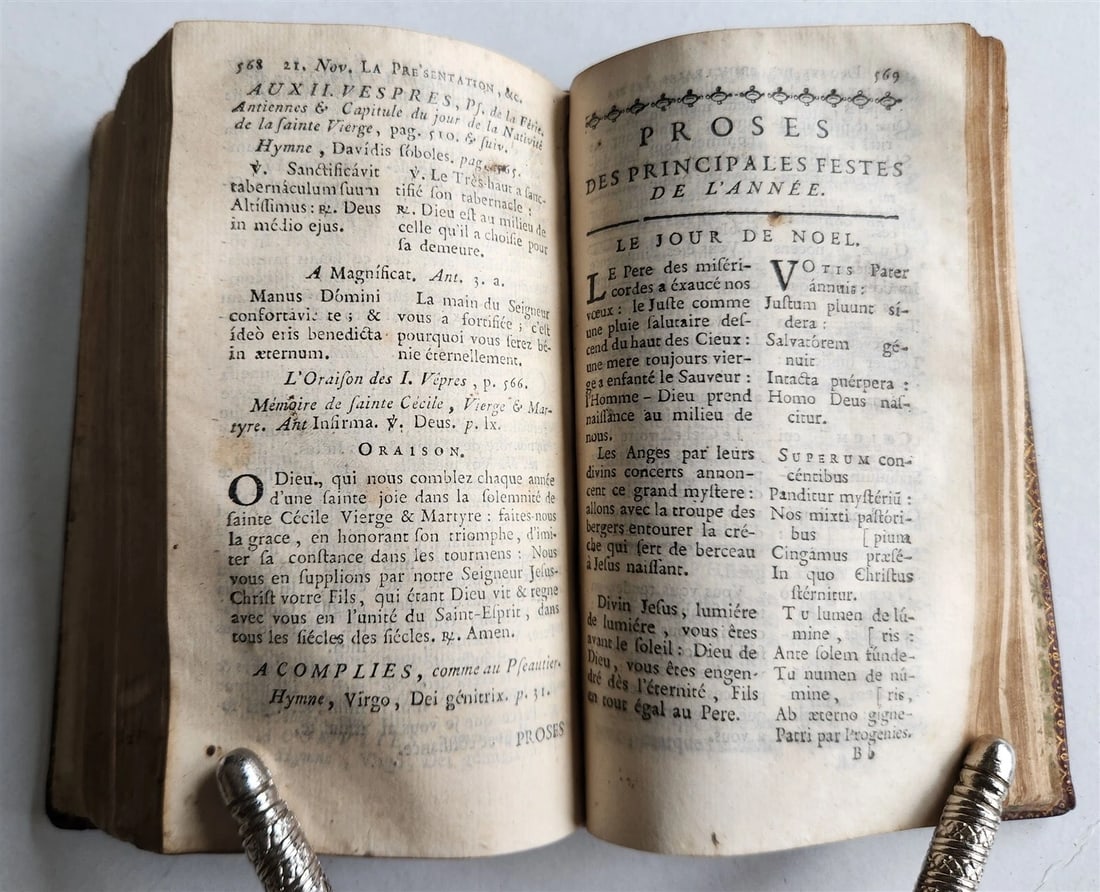 568 21. Nov. LA PRE'SENTATION, &c.
AUX II. VESPRES, Ps. de la Férie.
Antiennes & Capitule du jour de la Nativité
de la sainte Vierge, pag. 510. & suiv.
Hymne, Davídis sóboles. pag. 565.
℣. Sanctificávit
tabernáculum suum
Altíssimus: ℟. Deus
in médio ejus.
℣. Le Très-haut a sanc-
tifié son tabernacle:
℟. Dieu est au milieu de
celle qu'il a choisie pour
sa demeure.
A Magníficat. Ant. 3. a.
Manus Dómini
confortávit te; &
ídeò eris benedícta
in æternum.
La main du Seigneur
vous a fortifiée; c'est
pourquoi vous serez bé-
nie éternellement.
L'Oraison des I. Vépres, p. 566.
Mémoire de sainte Cécile, Vierge & Mar-
tyre. Ant Infirma. ℣. Deus. p. lx.
ORAISON.
O Dieu., qui nous comblez chaque année
d'une sainte joie dans la solemnité de
sainte Cécile Vierge & Martyre: faites-nous
la grace, en honorant son triomphe, d'imi-
ter sa constance dans les tourmens: Nous
vous en supplions par notre Seigneur Jesus-
Christ votre Fils, qui étant Dieu vit & regne
avec vous en l'unité du Saint-Esprit, dans
tous les siécles des siécles. ℟. Amen.
A COMPLIES, comme au Pseautier.
Hymne, Virgo, Dei génitrix. p. 31.
PROSES
569
PROSES
DES PRINCIPALES FESTES
DE L'ANNÉE.
LE JOUR DE NOEL.
LE Pere des miséri-
cordes a éxaucé nos
vœux: le Juste comme
une pluie salutaire des-
cend du haut des Cieux:
une mere toujours vier-
ge a enfanté le Sauveur:
l'Homme-Dieu prend
naissance au milieu de
nous.
Les Anges par leurs
divins concerts annon-
cent ce grand mystere:
allons avec la troupe des
bergers entourer la cré-
che qui sert de berceau
à Jesus naissant.
Divin Jesus, lumiére
de lumiére, vous êtes
avant le soleil: Dieu de
Dieu, vous êtes engen-
dré dès l'éternité, Fils
en tout égal au Pere.
VOTIS Pater
ánnuis:
Justum pluunt sí-
dera:
Salvatórem gé-
nuit
Intácta puérpera:
Homo Deus nás-
citur.
SUPERUM con-
céntibus
Pánditur mystériũ:
Nos mixti pastóri-
bus [pium
Cingámus præsé-
In quo Christus
stérnitur.
Tu lumen de lú-
mine, [ris:
Ante solem fúnde-
Tu numen de nú-
mine, [ris,
Ab æterno gígne-
Patri par Progénies.
Bb